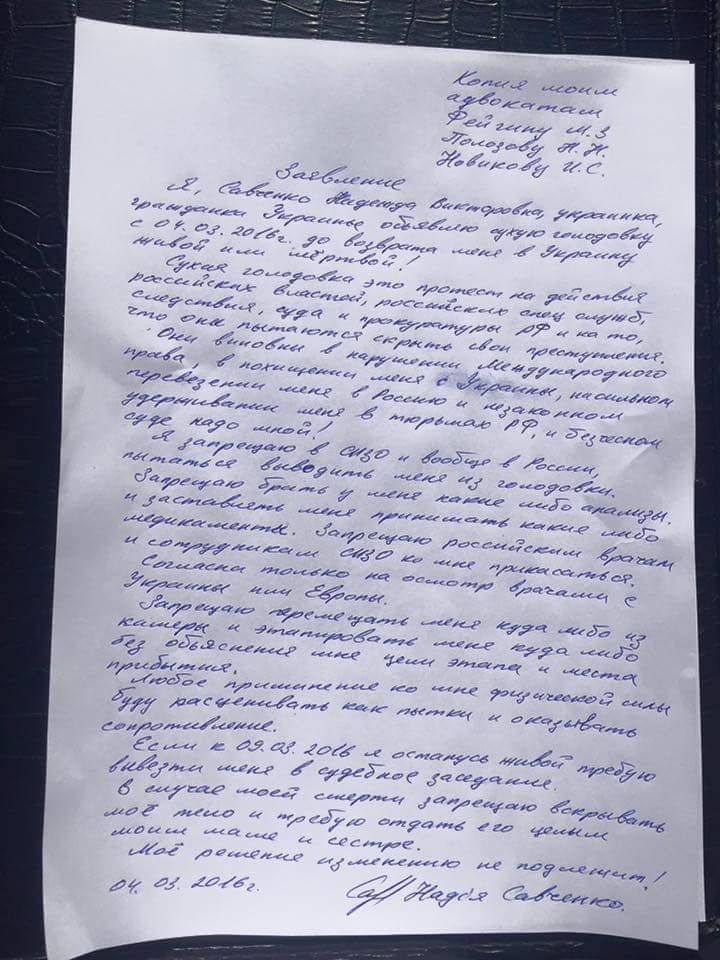 Копия моим
адвокатам
Фейгину М.З
Полозову Н.Н.
Новикову И.С.
Заявление
Я, Савченко Надежда Викторовна, украинка,
гражданка Украины объявляю сухую голодовку
с 04.03.2016г. до возврата меня в Украину
живой или мёртвой!
Сухая голодовка это протест на действия
российских властей, российских спец служб,
следствия, суда и прокуратуры РФ и на то,
что они пытаются скрыть свои преступления.
Они виновны в нарушении Международного
права, в похищении меня с Украины, насильном
перевезении меня в Россию и незаконном
удерживании меня в тюрьмах РФ, и безчесном
суде надо мной!
Я запрещаю в СИЗО и вообще в России,
пытаться выводить меня из голодовки.
Запрещаю брать у меня какие либо анализы.
и заставлять меня принимать какие либо
медикаменты. Запрещаю российским врачам
и сотрудникам СИЗО ко мне прикасаться.
Согласна только на осмотр врачами с
Украины или Европы.
Запрещаю перемещать меня куда либо из
камеры и этапировать меня куда либо
без обьяснения мне цели этапа и места
прибытия.
Любое приминение ко мне физической силы
буду расценивать как пытки и оказывать
сопротивление.
Если к 09.03.2016 я останусь живой требую
вывезти меня в судебное заседание.
В случае моей смерти запрещаю вскрывать
моё тело и требую отдать его целым
моим маме и сестре.
Моё решение изменению не подлежит!
04.03.2016г. Надія Савченко.